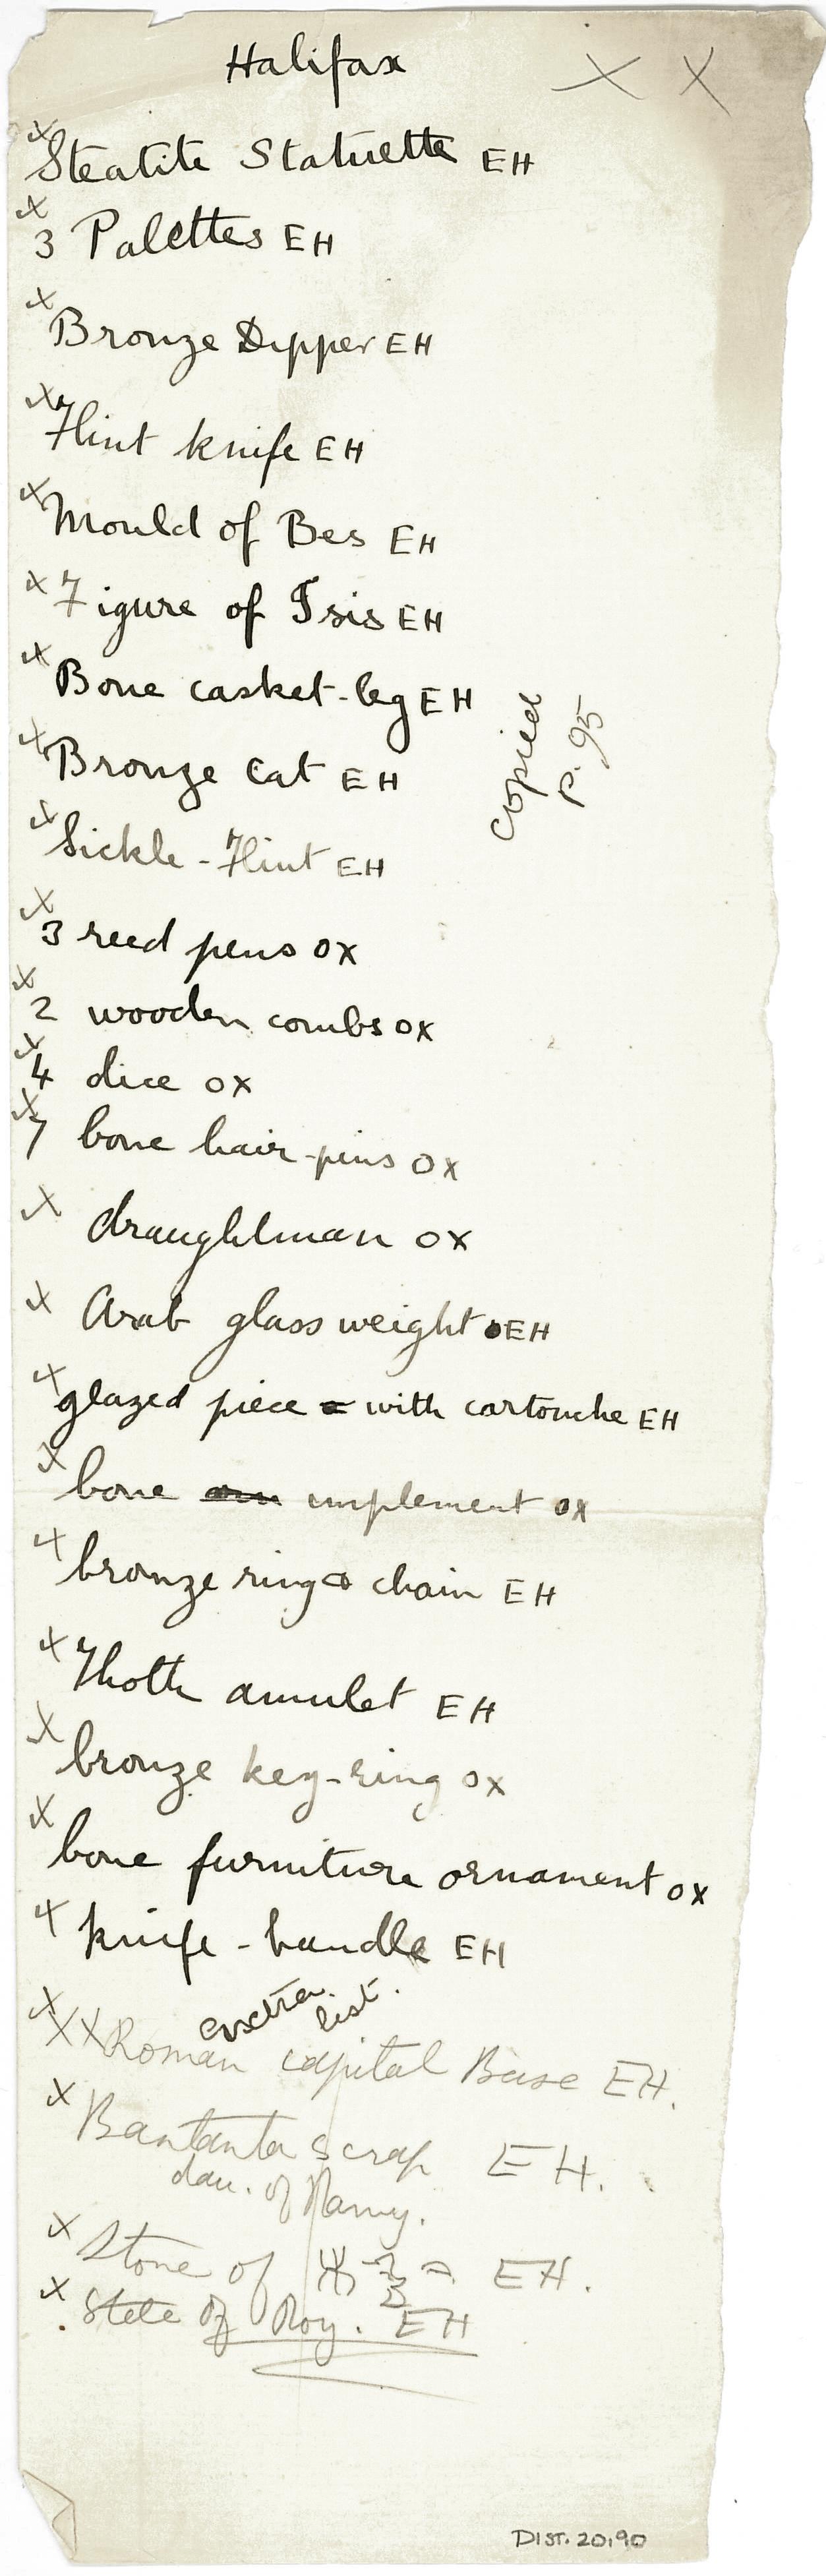 Halifax X X
x Steatite Statuette EH
x 3 Palettes EH
x Bronze Dipper EH
x Flint knife EH
x Mould of Bes EH
x Figure of Isis EH
x Bone casket-leg EH
x Bronze Cat EH
copied
p. 95
x Sickle-Flint EH
x 3 reed pens OX
x 2 wooden combs OX
x 4 dice OX
x 7 bone hair-pins OX
x draughtman OX
x Arab glass weight EH
x glazed piece with cartouche EH
x bone implement OX
x bronze ring & chain EH
x Thoth amulet EH
x bronze key-ring OX
x bone furniture ornament OX
x knife-handle EH
extra list.
x XX Roman capital Base EH.
x Bantanta scrap EH.
dau. of
x Stone of EH.
x Stele of Roy. EH
DIST. 20.90